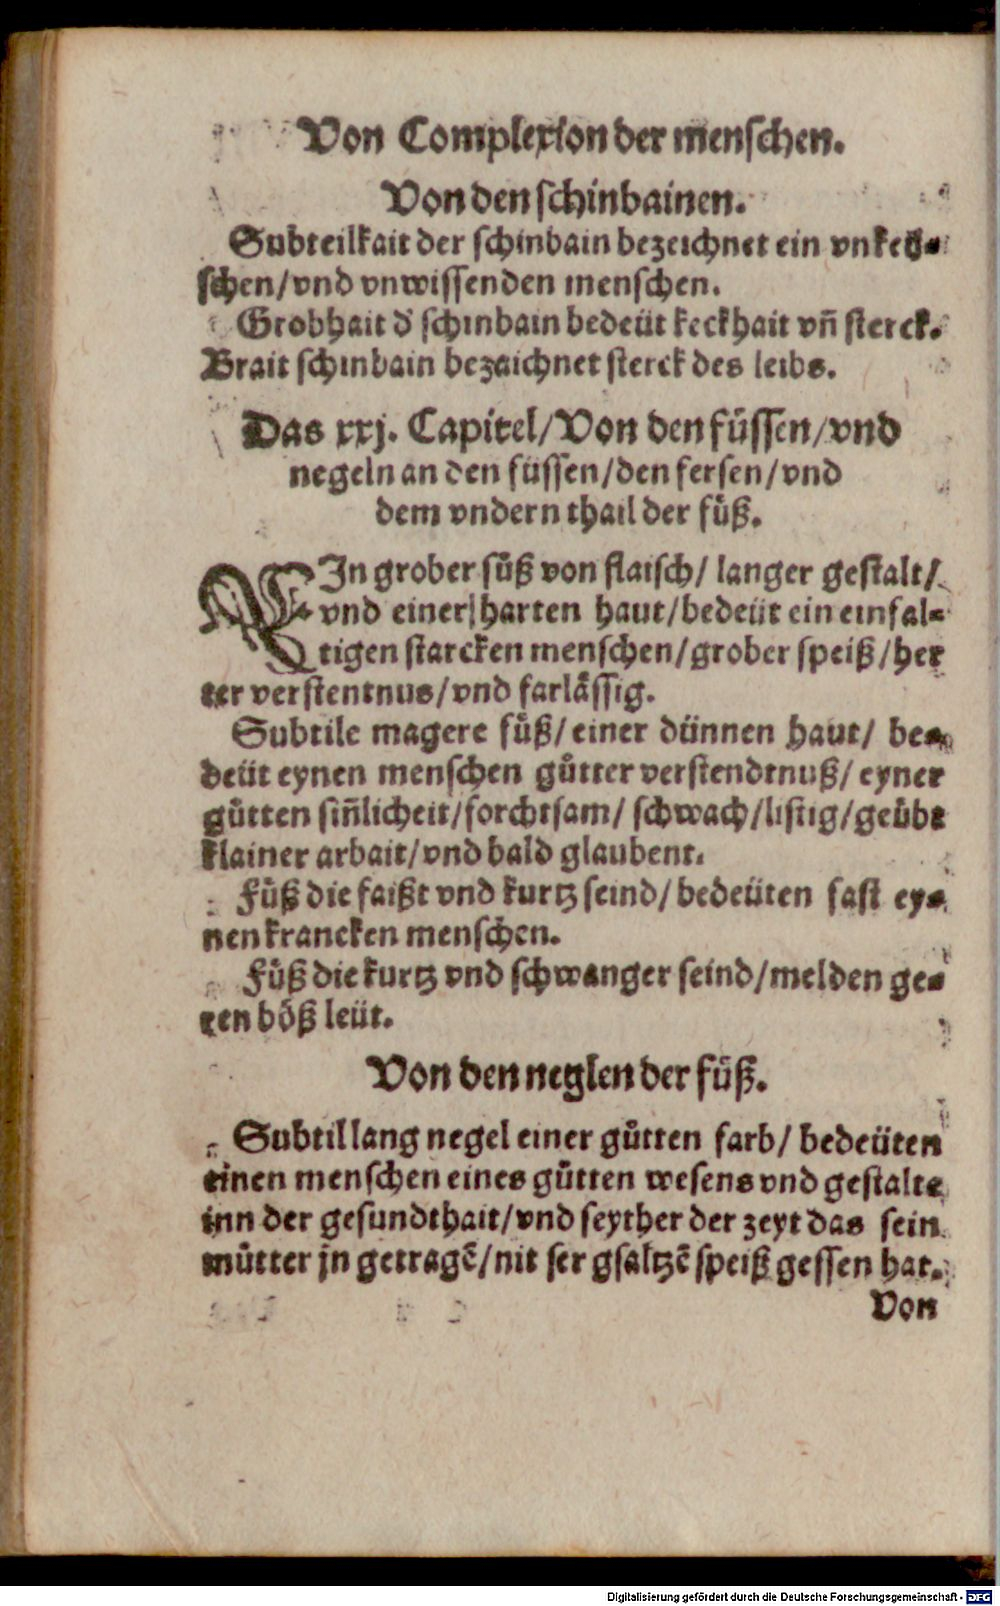 Von Complexion der menschen.
Von den schinbainen.
Subteilkait der schinbain bezeichnet ein vnkeü-
schen/vnd vnwissenden menschen.
Grobhait d' schinbain bedeüt keckhait vn̄ sterck.
Brait schinbain bezaichnet sterck des leibs.
Das xxj. Capitel/Von den füssen/vnd
negeln an den füssen/den fersen/vnd
dem vndern thail der fuͤß.
EIn grober fuͤß von flaisch/ langer gestalt/
vnd einer harten haut/bedeüt ein einfal-
tigen starcken menschen/grober speiß/her
ter verstentnus/vnd farlaͤssig.
Subtile magere fuͤß/ einer dünnen haut/ be-
deüt eynen menschen guͦtter verstendtnuß/ eyner
guͦtten sin̄licheit/forchtsam/ schwach/listig/geuͤbt
klainer arbait/vnd bald glaubent.
Fuͤß die faißt vnd kurtz seind/ bedeüten fast ey-
nen krancken menschen.
Fuͤß die kurtz vnd schwanger seind/melden ge-
ren boͤß leüt.
Von den neglen der fuͤß.
Subtil lang negel einer guͦtten farb/ bedeüten
einen menschen eines guͦtten wesens vnd gestalte
inn der gesundthait/vnd seyther der zeyt das sein
muͦtter jn getragē/nit ser gsaltzē speiß gessen hat.
Von
Digitalisierung gefördert durch die Deutsche Forschungsgemeinschaft - DFG